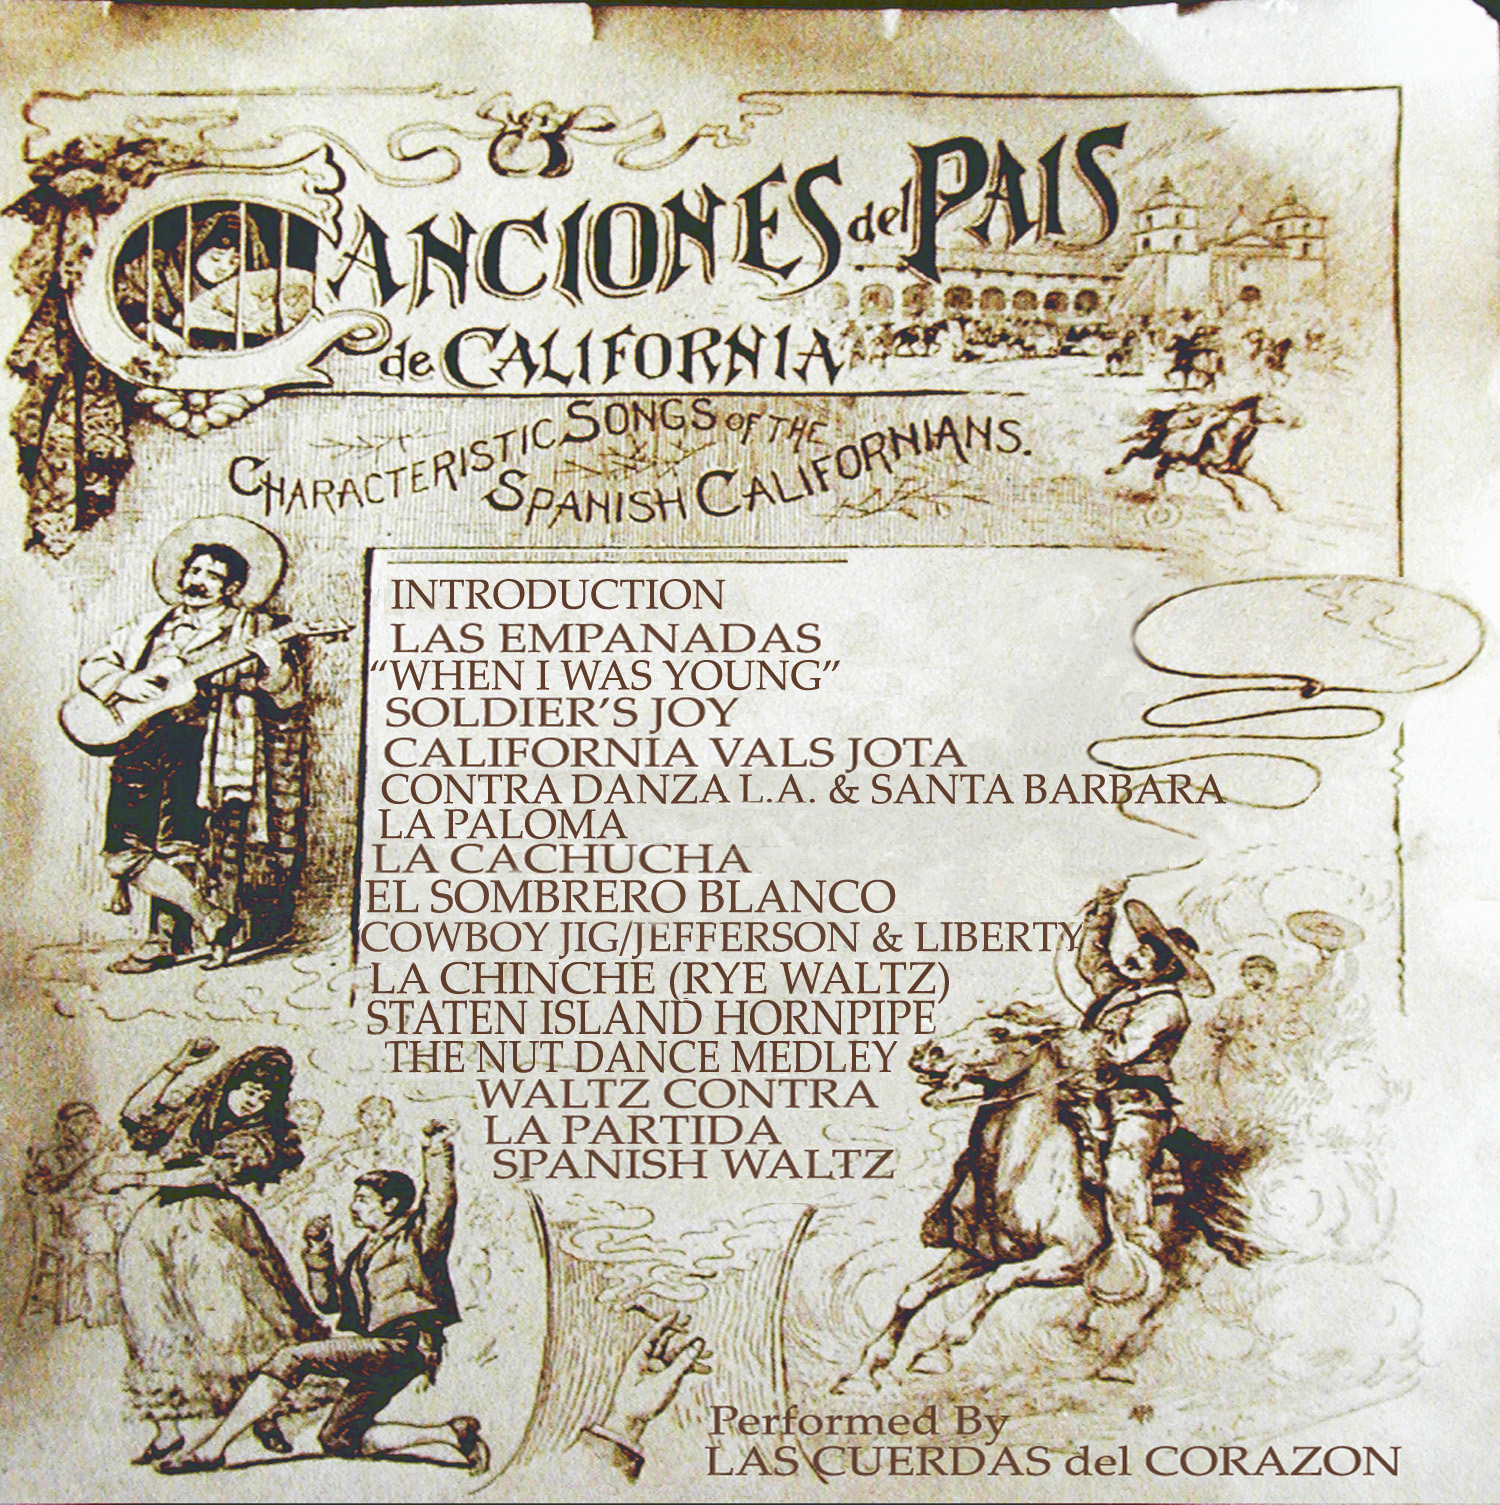 CANCIONES del PAIS
de CALIFORNIA
CHARACTERISTIC SONGS OF THE
SPANISH CALIFORNIANS.
INTRODUCTION
LAS EMPANADAS
“WHEN I WAS YOUNG”
SOLDIER’S JOY
CALIFORNIA VALS JOTA
CONTRA DANZA L.A. & SANTA BARBARA
LA PALOMA
LA CACHUCHA
EL SOMBRERO BLANCO
COWBOY JIG/JEFFERSON & LIBERTY
LA CHINCHE (RYE WALTZ)
STATEN ISLAND HORNPIPE
THE NUT DANCE MEDLEY
WALTZ CONTRA
LA PARTIDA
SPANISH WALTZ
Performed By
LAS CUERDAS del CORAZON